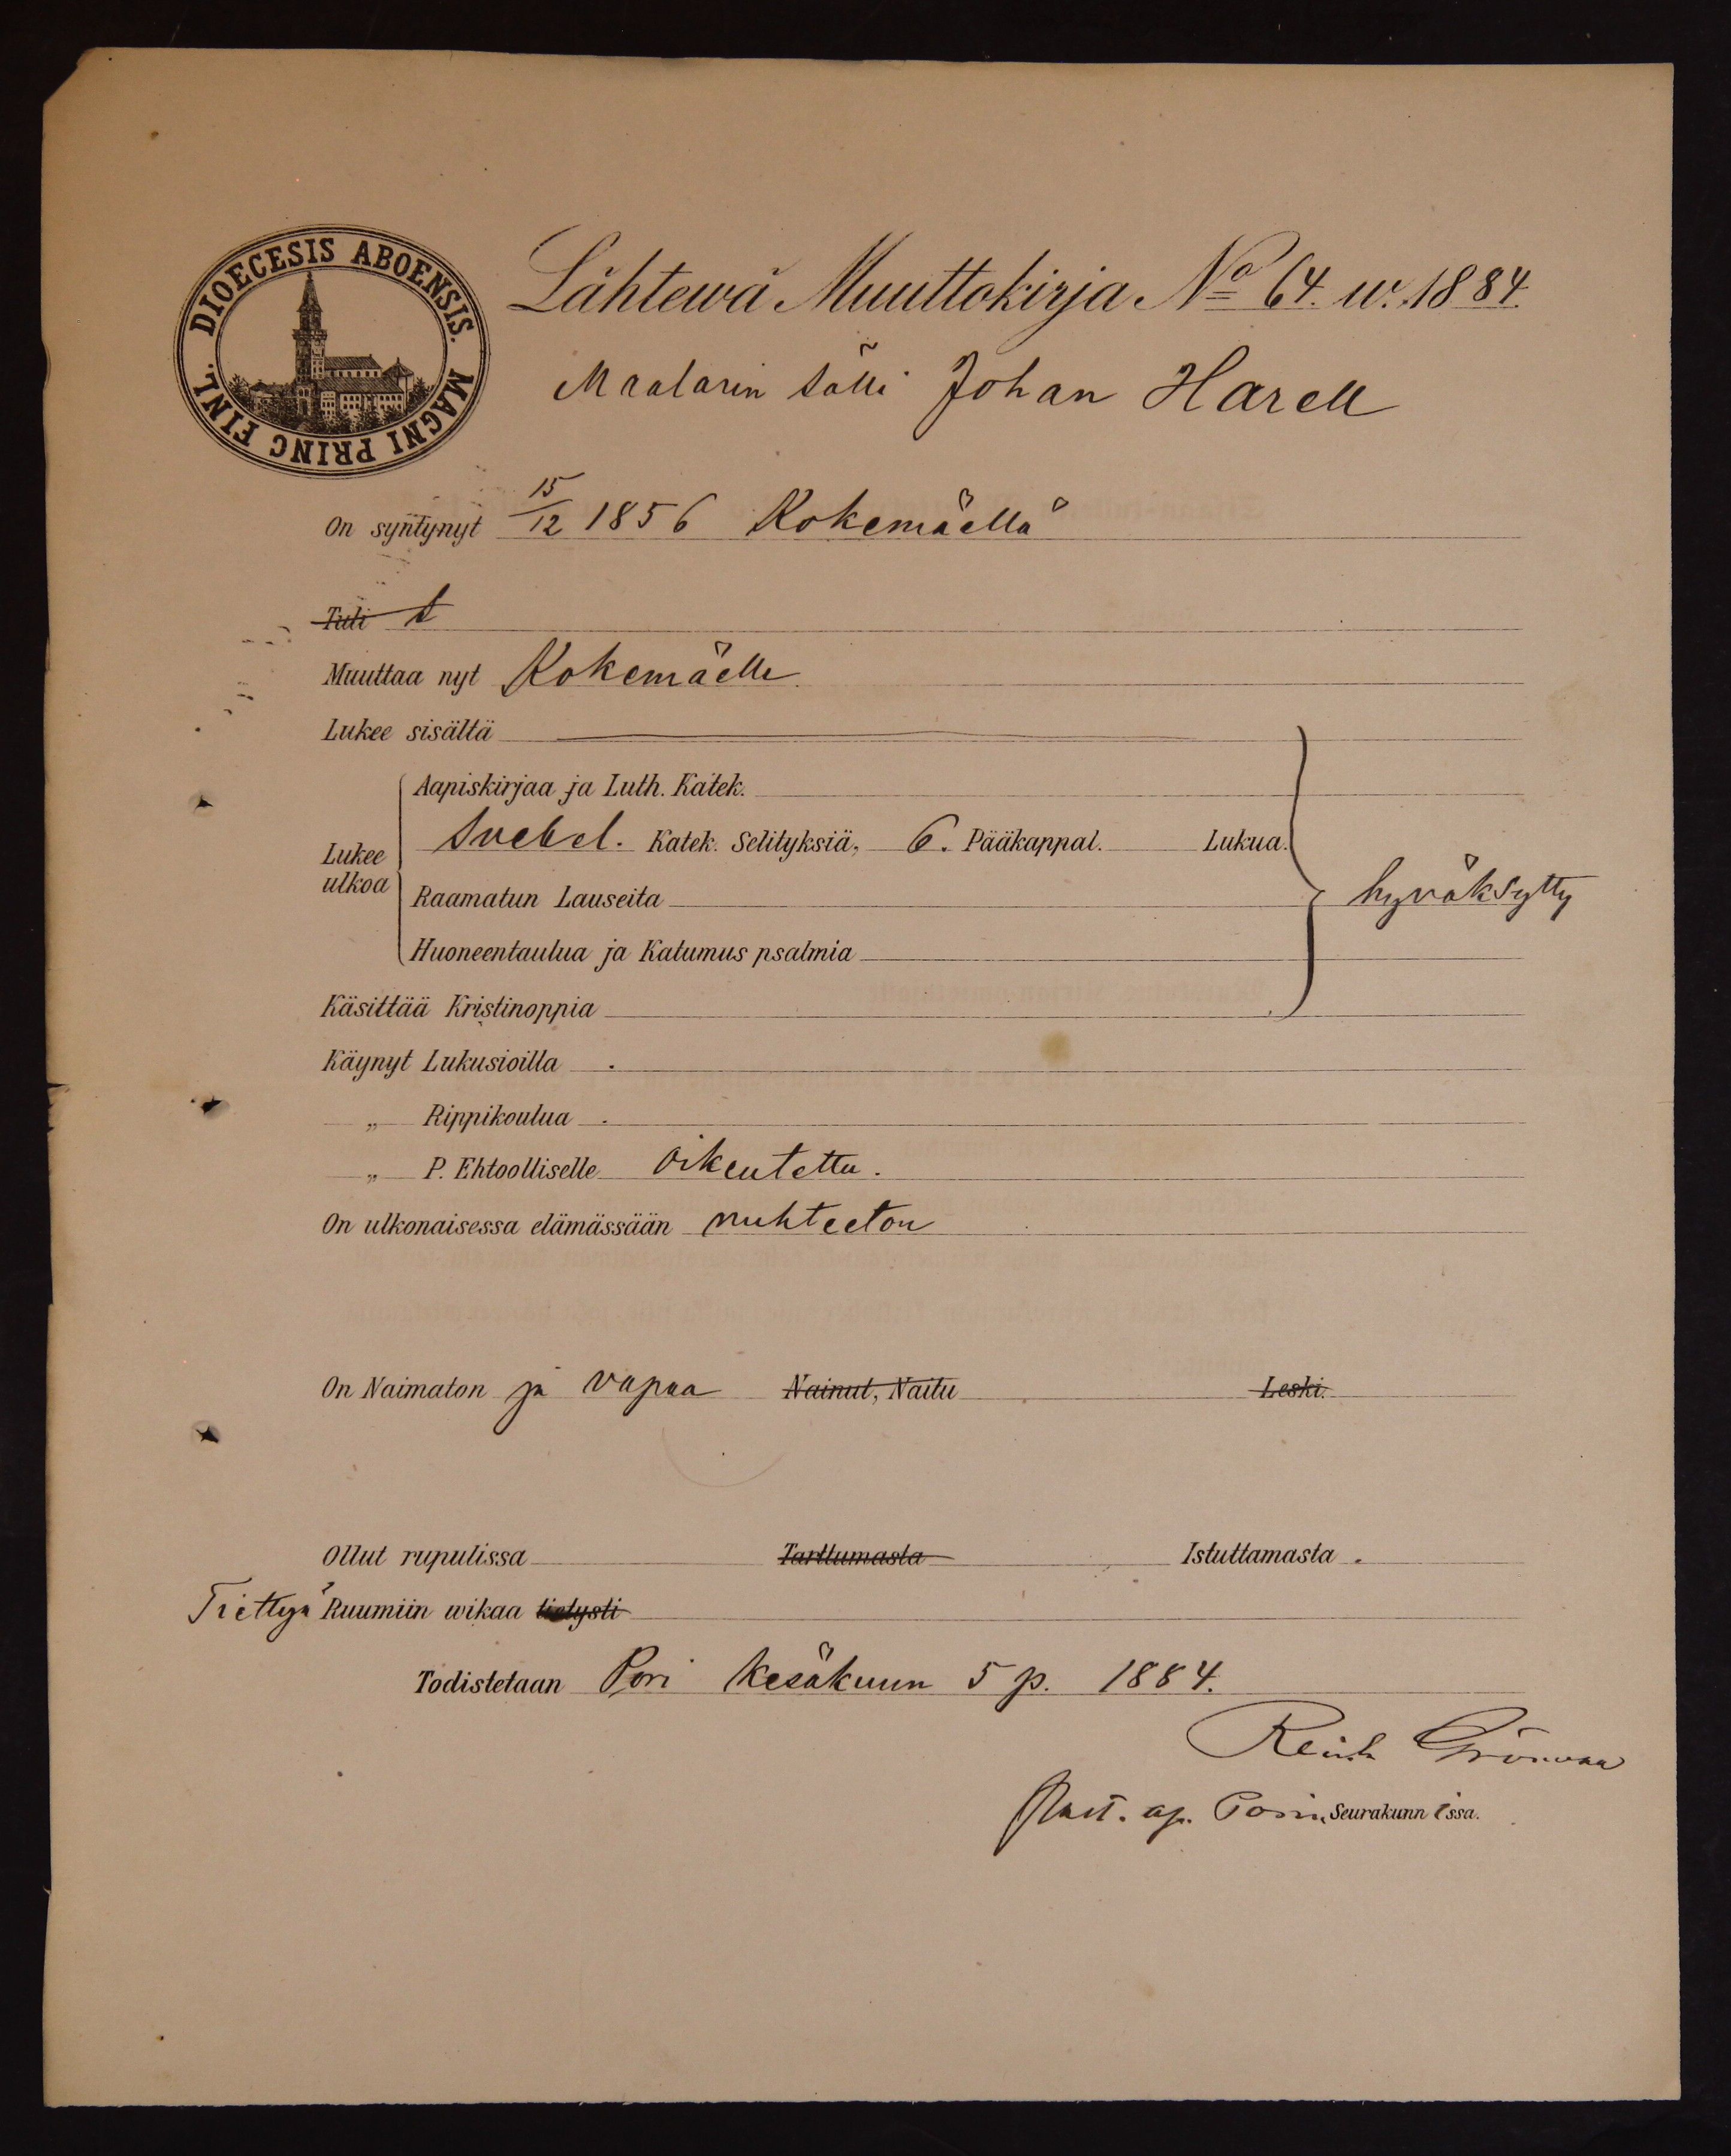 DIOECESIS ABOENSIS. MAGNI PRINC FINL.
Lähtewä Muuttokirja No 64. w. 1884.
Maalarin sälli Johan Harell
On syntynyt 15/12 1856 Kokemäellä
Tuli
Muuttaa nyt Kokemäelle.
Lukee sisältä
Aapiskirjaa ja Luth. Katek.
Svebel. Katek. Selityksiä, 6. Pääkappal. Lukua.
Lukee ulkoa
Raamatun Lauseita
hyväksytty
Huoneentaulua ja Katumus psalmia
Käsittää Kristinoppia
Käynyt Lukusioilla
„ Rippikoulua
„ P. Ehtoolliselle oikeutettu.
On ulkonaisessa elämässään nuhteeton
On Naimaton ja vapaa Nainut, Naitu Leski.
Ollut rupulissa Tarttumasta Istuttamasta
Tiettyä Ruumiin wikaa tietysti
Todistetaan Pori Kesäkuun 5 p. 1884.
Past. ap. Porin Seurakunnissa.